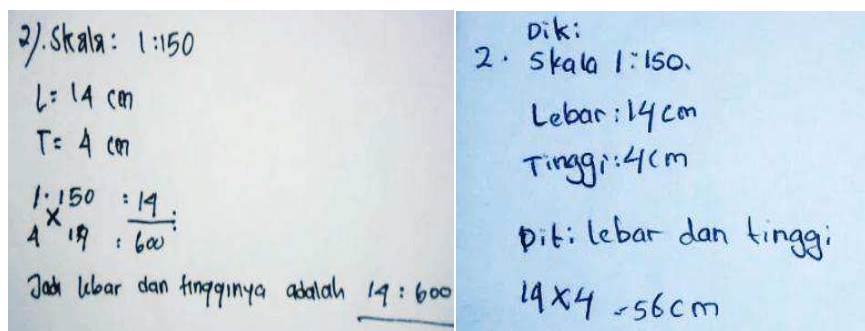 2). Skala: 1:150
L= 14 cm
T= 4 cm
1.150 : 14
× 
4 14 : 600
Jadi lebar dan tingginya adalah 14 : 600
Dik:
2. Skala 1:150.
Lebar: 14 cm
Tinggi: 4 cm
Dit: lebar dan tinggi
14 x 4 = 56 cm